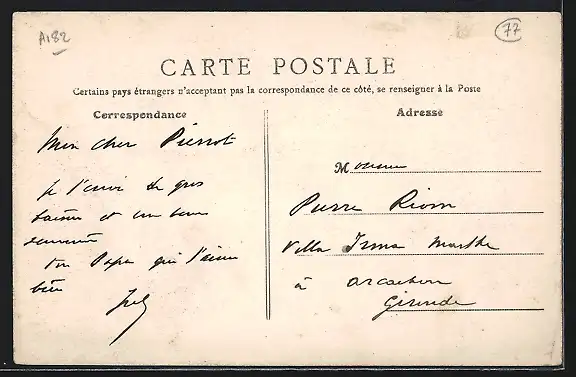 A182
77
CARTE POSTALE
Certains pays étrangers n'acceptant pas la correspondance de ce côté, se renseigner à la Poste
Correspondance
Mon cher Pierrot
Je t'envoi de gros
baisers et un bon
souvenir
ton Papa qui t'aime
bien
Adresse
Monsieur
Pierre Riom
Villa Irma Marthe
à Arcachon
Gironde